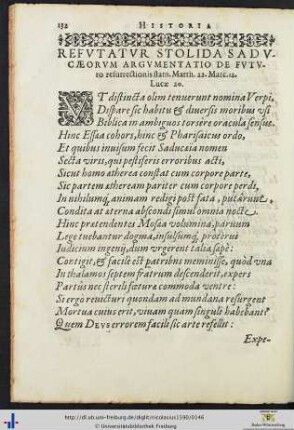 132 HISTORIA
REFVTATVR STOLIDA SADV-
CÆORVM ARGVMENTATIO DE FVTV-
ro resurrectionis statu. Matth. 22. Marc. 12.
Lucæ 20.
VT distincta olim tenuerunt nomina Verpi,
Dispare sic habitu & diuersis moribus vsi
Biblica in ambiguos torsere oracula sensus.
Hinc Essæa cohors, hinc & Pharisaicus ordo,
Et quibus inuisum fecit Saducaia nomen
Secta viris, qui pestiferis erroribus acti,
Sicut homo atherea constat cum corpore parte,
Sic partem atheream pariter cum corpore perdi,
In nihilumq; animam redigi post fata, putârunt.
Condita at æterna abscondi simul omnia nocte
Hinc prætendentes Mosæa volumina, prauum
Lege tuebantur dogma, insulsumq; proterui
Iudicium ingenij, dum vrgerent talia sæpe:
Contigit, & facile est patribus meminisse, quòd vna
In thalamos septem fratrum descenderit, expers
Partûs nec sterili fœtura commoda ventre:
Si ergo reuicturi quondam ad mundana resurgent
Mortua cuius erit, viuam quam singuli habebant?
Quem DEVS errorem facili sic arte refellit:
Expe-
http://dl.ub.uni-freiburg.de/diglit/nicolosius1590/0146
© Universitätsbibliothek Freiburg
Baden-Württemberg